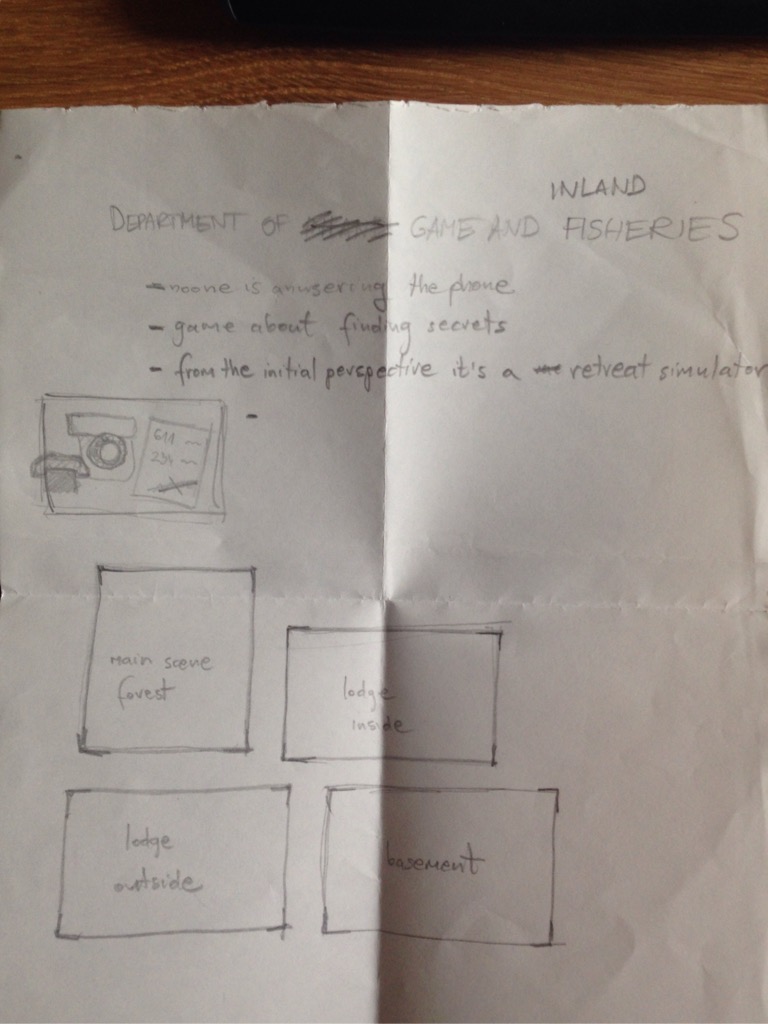 INLAND
DEPARTMENT OF GAME AND FISHERIES
- noone is anwsering the phone
- game about finding secrets
- from the initial perspective it's a retreat simulator
-
611
234
main scene
forest
lodge
inside
lodge
outside
basement